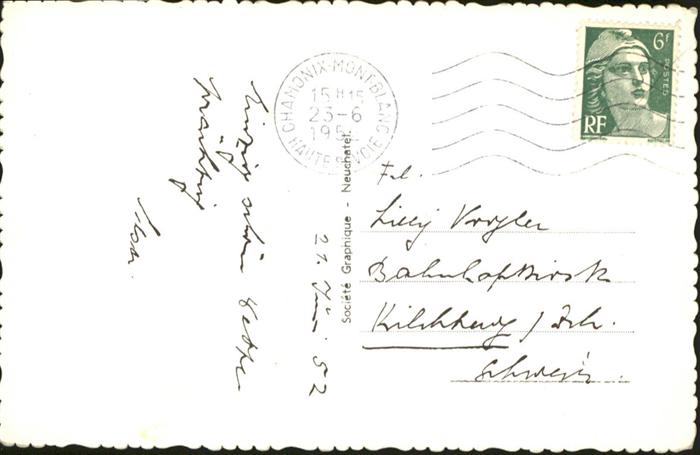 CHAMONIX-MONT-BLANC
15H15
23-6
195
HAUTE SAVOIE
6F
POSTES
RF
schön
prächtig
Société Graphique - Neuchatel.
52
Frl.
Lilly Vogler
Bahnhofkiosk
Kilchberg / Zch.
Schweiz